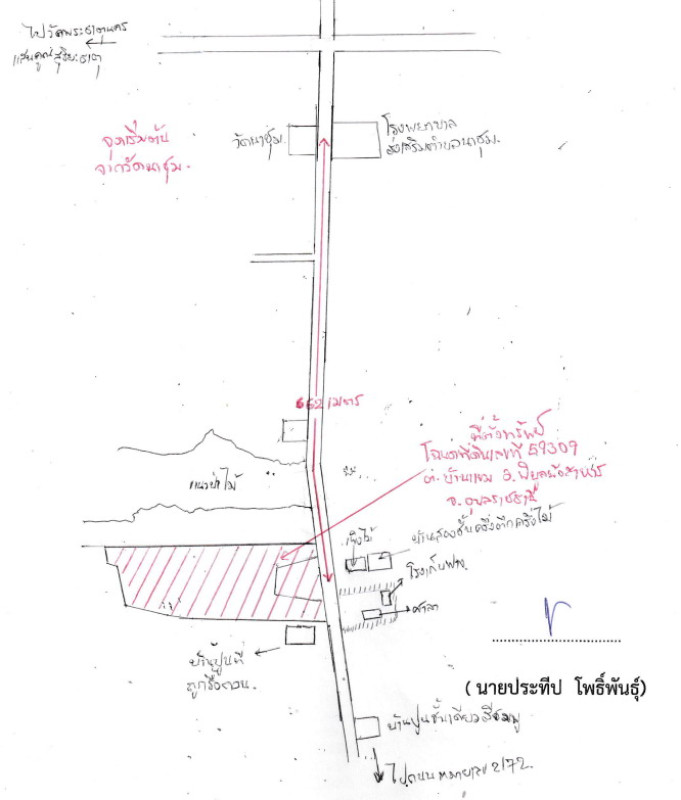 ไปวัดพระธาตุนคร
แสนคูณสุริยะธาตุ
จุดเริ่มต้น
จากวัดนาชุม.
วัดนาชุม.
โรงพยาบาล
ส่งเสริมตำบลนาชุม.
662 เมตร
ที่ตั้งทรัพย์
โฉนดที่ดินเลขที่ 59309
ต. บ้านแขม อ. พิบูลมังสาหาร
จ. อุบลราชธานี
แนวป่าไม้
เพิงไม้
บ้านสองชั้นครึ่งตึกครึ่งไม้
โรงเก็บฟาง
ศาลา
บ้านปูนที่
ถูกรื้อถอน.
(นายประทีป โพธิ์พันธุ์)
บ้านปูนชั้นเดียวสีชมพู
ไปถนนหมายเลข 2172.